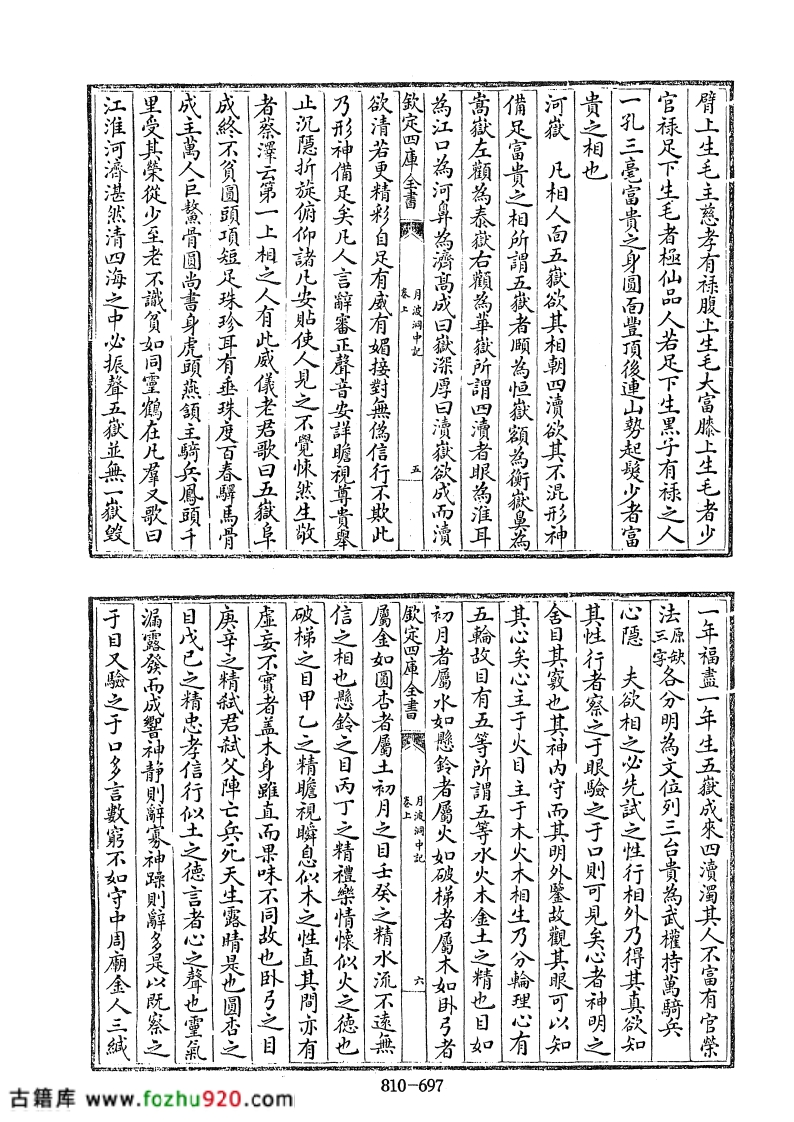 臂上生毛主慈孝有禄腹上生毛大富膝上生毛者少
官禄足下生毛者極仙品人若足下生黒子有禄之人
一孔三毫富貴之身圓面豐頂後連山勢起髮少者富
貴之相也
河嶽　凡相人面五嶽欲其相朝四瀆欲其不混形神
備足富貴之相所謂五嶽者頤為恒嶽額為衡嶽鼻為
嵩嶽左顴為泰嶽右顴為華嶽所謂四瀆者眼為淮耳
為江口為河鼻為濟髙成曰嶽深厚曰瀆嶽欲成而瀆
欽定四庫全書　月波洞中記　卷上　五
欲清若更精彩自足有威有媚接對無偽信行不欺此
乃形神備足矣凡人言辭審正聲音安詳瞻視尊貴舉
止沉隱折旋俯仰諸凡安貼使人見之不覺悚然生敬
者蔡澤云第一上相之人有此威儀老君歌曰五嶽阜
成終不貧圓頭項短足珠珍耳有垂珠度百春驛馬骨
成主萬人巨鰲骨圓尚書身虎頭燕頷主騎兵鳳頭千
里受其榮從少至老不識貧如同靈鶴在凡羣又歌曰
江淮河濟湛然清四海之中必振聲五嶽並無一嶽毀
一年福盡一年生五嶽成來四瀆濁其人不富有官榮
法原缺三字各分明為文位列三台貴為武權持萬騎兵
心隱　夫欲相之必先試之性行相外乃得其真欲知
其性行者察之于眼驗之于口則可見矣心者神明之
舍目其竅也其神内守而其明外鑒故觀其眼可以知
其心矣心主于火目主于木火木相生乃分輪理心有
五輪故目有五等所謂五等水火木金土之精也目如
初月者屬水如懸鈴者屬火如破梯者屬木如卧弓者
欽定四庫全書　月波洞中記　卷上　六
屬金如圓杏者屬土初月之目壬癸之精水流不遠無
信之相也懸鈴之目丙丁之精禮樂情懷似火之德也
破梯之目甲乙之精瞻視瞬息似木之性直其間亦有
虛妄不實者蓋木身雖直而果味不同故也卧弓之目
庚辛之精弑君弑父陣亡兵死天生露睛是也圓杏之
目戊巳之精忠孝信行似土之德言者心之聲也靈氣
漏露發而成響神静則辭寡神躁則辭多是以既察之
于目又驗之于口多言數窮不如守中周廟金人三緘
810-697
古籍库 www.fozhu920.com